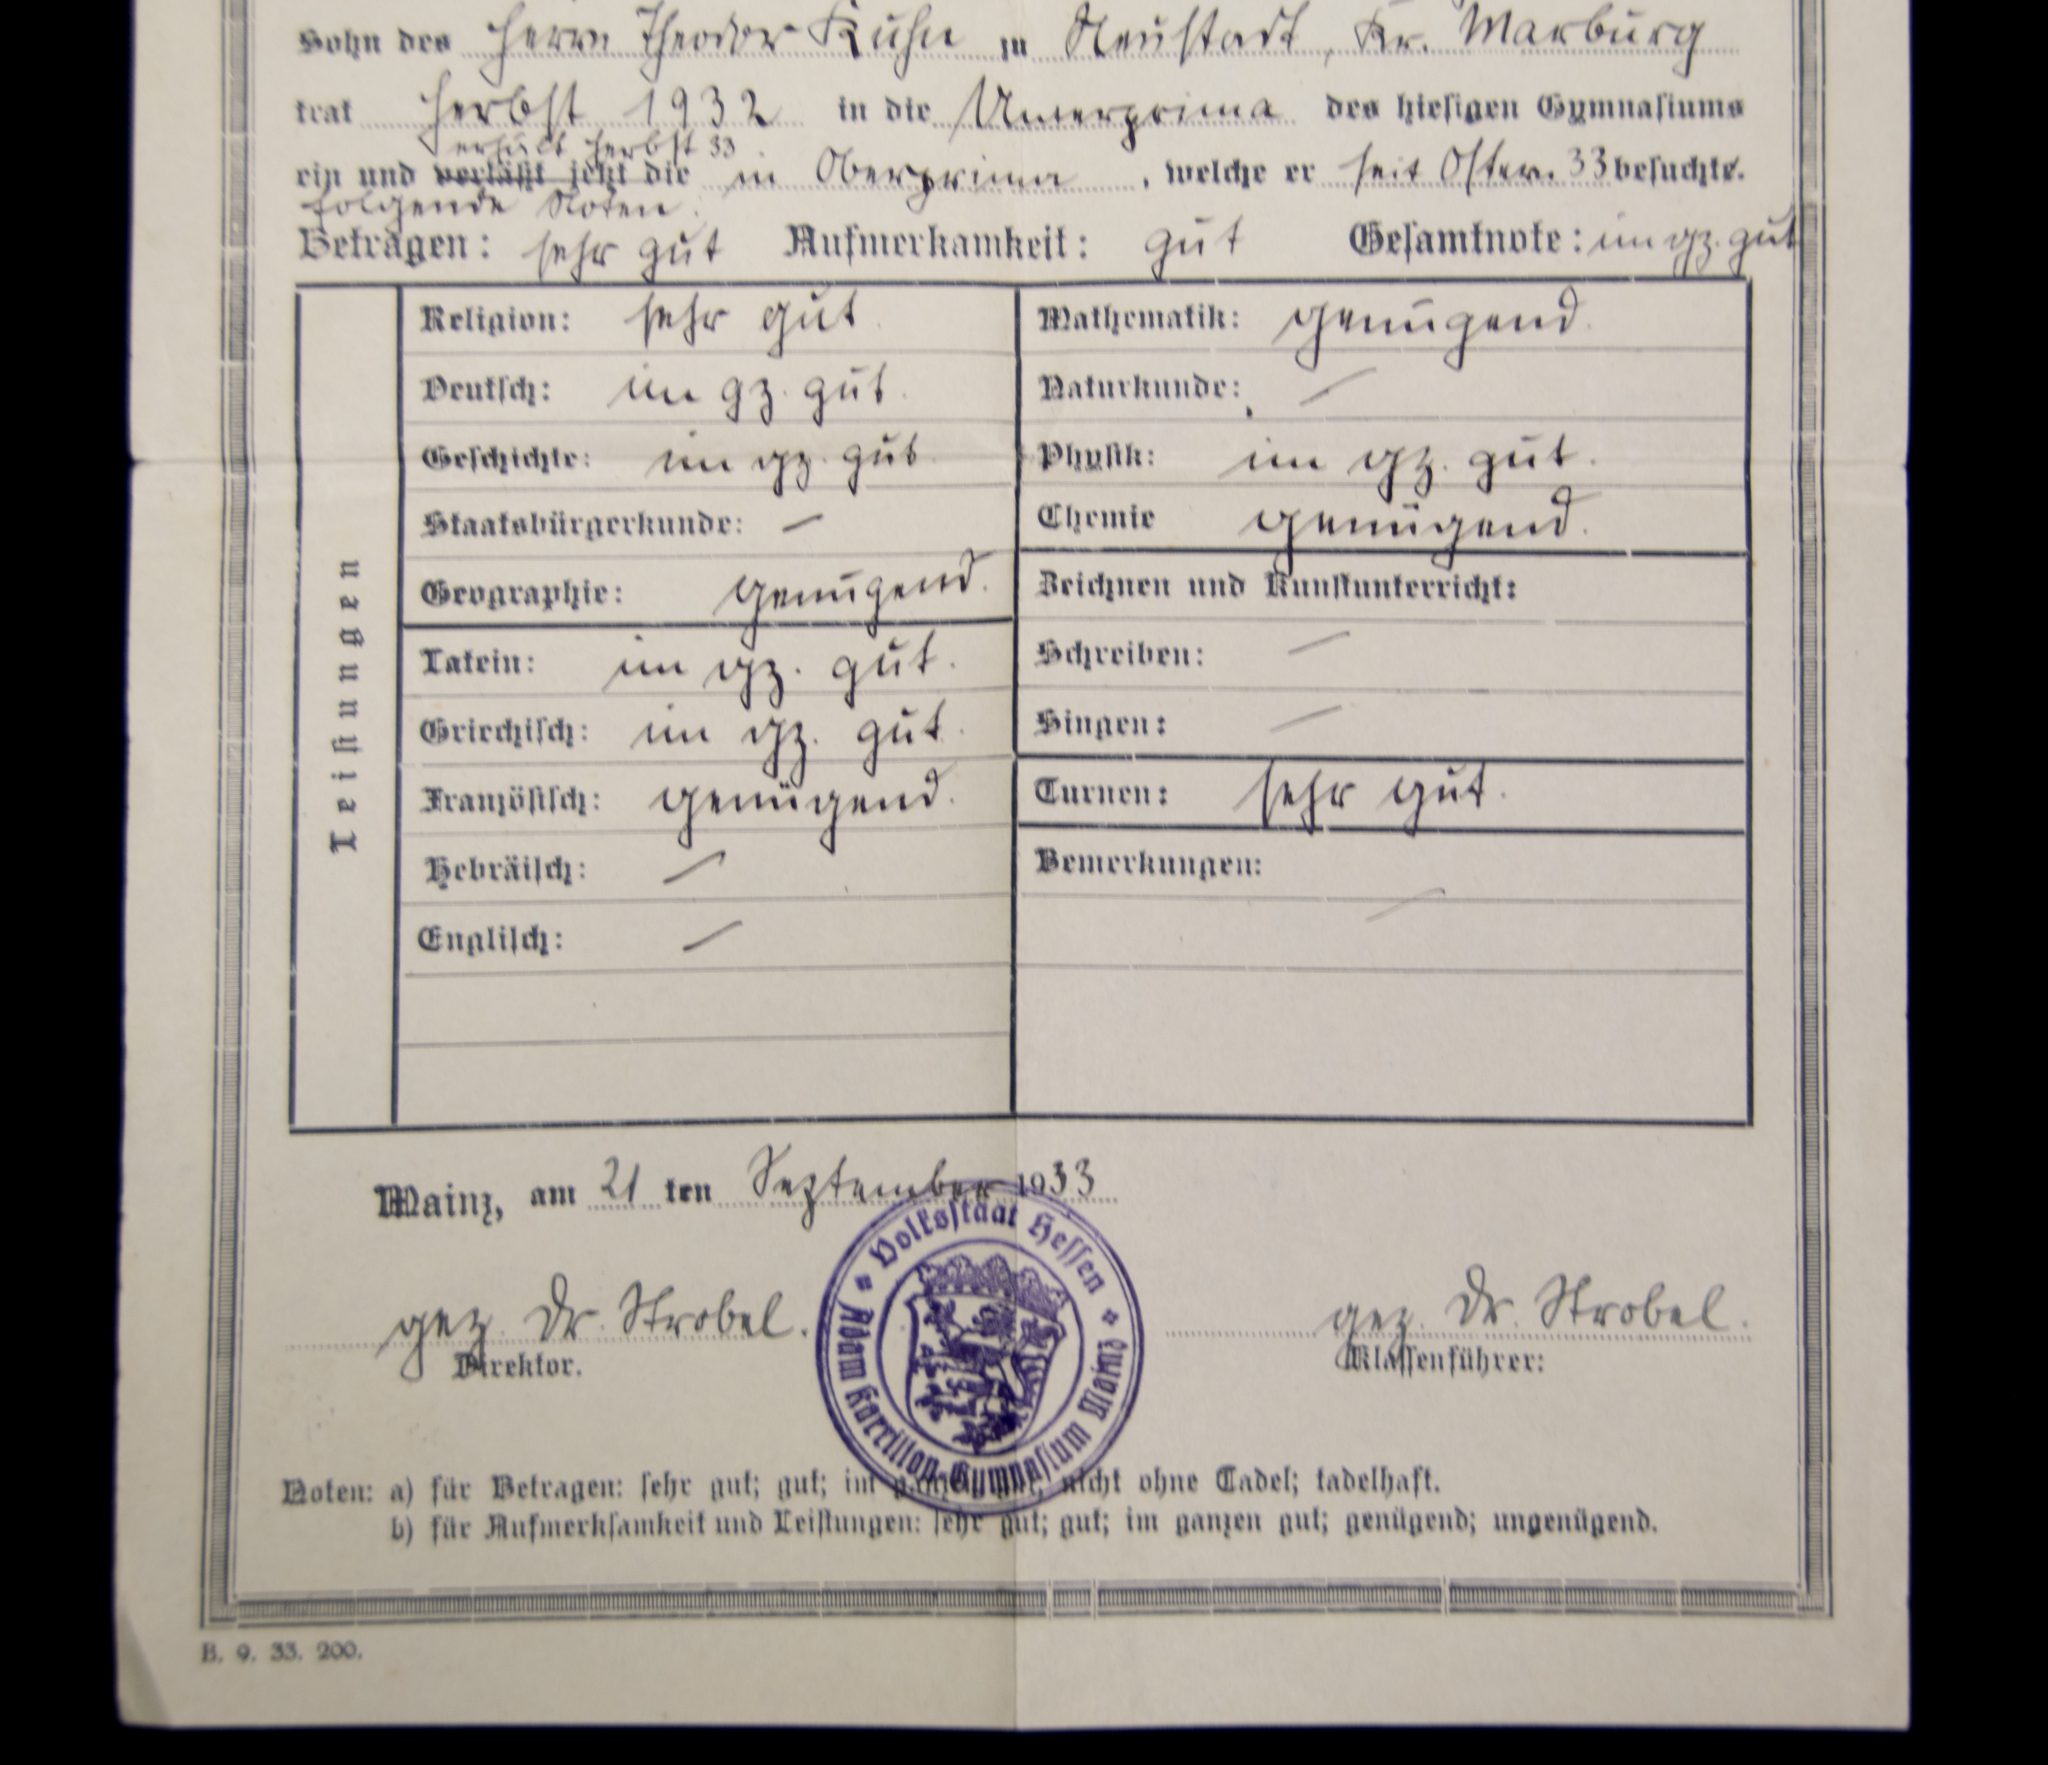 Sohn des Herrn Theodor Kuhn zu Neustadt, Kr. Marburg
trat Herbst 1932 in die Unterprima des hiesigen Gymnasiums
erhält Herbst 33
ein und verläßt jetzt die in Oberprima, welche er seit Ostern 33 besuchte.
folgende Noten:
Betragen: sehr gut Aufmerkamkeit: gut Gesamtnote: im gz. gut
Leistungen
Religion: sehr gut.
Deutsch: im gz. gut.
Geschichte: im gz. gut.
Staatsbürgerkunde: —
Geographie: genügend.
Latein: im gz. gut.
Griechisch: im gz. gut.
Französisch: genügend.
Hebräisch: —
Englisch: —
Mathematik: genügend.
Naturkunde: —
Physik: im gz. gut.
Chemie genügend.
Zeichnen und Kunstunterricht:
Schreiben: —
Singen: —
Turnen: sehr gut.
Bemerkungen:
—
Mainz, am 21 ten September 1933
Volksstaat Hessen
Adam Karrillon-Gymnasium Mainz
gez. Dr. Strobel.
Direktor.
gez. Dr. Strobel.
Klassenführer:
Noten: a) für Betragen: sehr gut; gut; im ganzen gut; nicht ohne Tadel; tadelhaft.
b) für Aufmerksamkeit und Leistungen: sehr gut; gut; im ganzen gut; genügend; ungenügend.
B. 9. 33. 200.